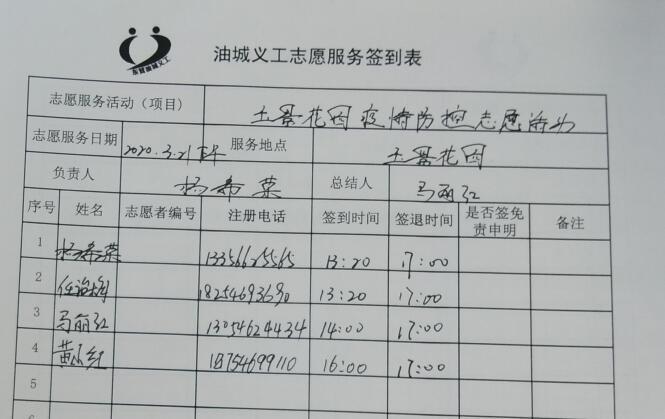 油城义工志愿服务签到表
志愿服务活动（项目） 花园疫情防控志愿活动
志愿服务日期 2020.3.21下午 服务地点 花园
负责人 杨希荣 总结人 马丽红
序号 姓名 志愿者编号 注册电话 签到时间 签退时间 是否签免责申明 备注
1 杨希荣 13356625565 13:20 17:00
2 18254693690 13:20 17:00
3 马丽红 13054624434 14:00 17:00
4 黄小红 18754699110 16:00 17:00
5